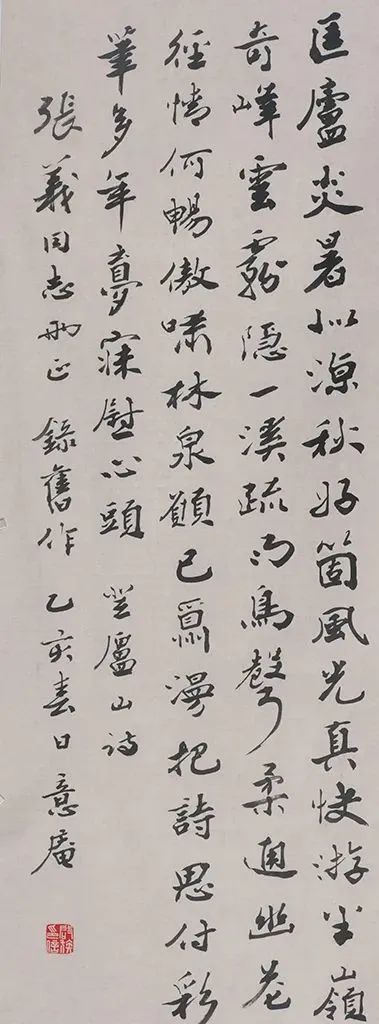 匡廬炎暑似涼秋好箇風光真快游半嶺
奇峰雲霧隱一溪疏雨鳥聲柔通幽花
徑情何暢傲嘯林泉願已漫把詩思付彩
筆多年夢寐慰心頭 登廬山詩
張義同志正 錄舊作 乙亥春日意庵